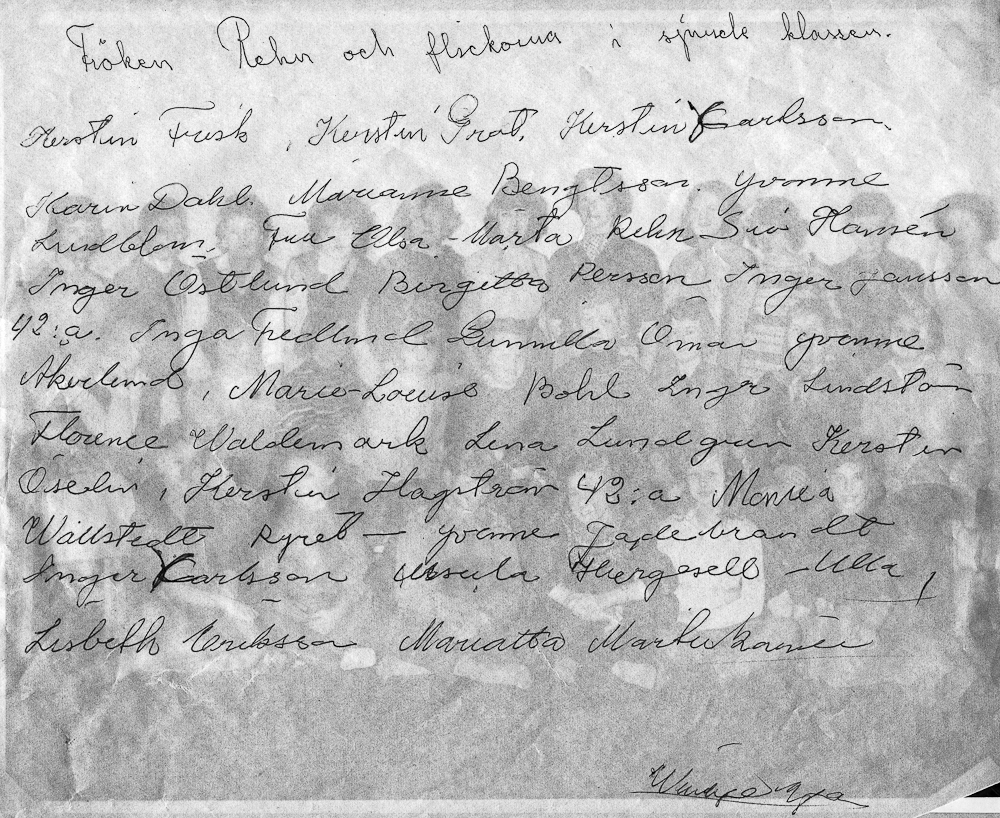 Fröken Rehn och flickorna i sjunde klassen.
Kerstin Frisk, Kerstin Grot, Kerstin Karlsson.
Karin Dahl. Marianne Bengtsson. Yvonne
Lundblom, Fru Elsa-Märta Rehn Siv Hansén
Inger Östlund Birgitta Persson Inger Jansson
42:a. Inga Fredlund Gunnilla Öman Yvonne
Åkerlund, Marie-Louise Bohl Inger Lindström
Florence Waldemark Lena Lundgren Kerstin
Öselin, Kerstin Hagström 42:a Monica
Wallstedt Yvonne Jadebrandt
Inger Karlsson Ursula Hergesell - Ulla,
Lisbeth Eriksson Mariatta